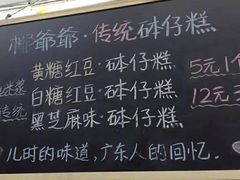 柳爷爷·传统砵仔糕
黄糖红豆·砵仔糕 5元1
白糖红豆·砵仔糕 12元
黑芝麻味·砵仔糕
传统
儿时的味道,广东人的回忆.